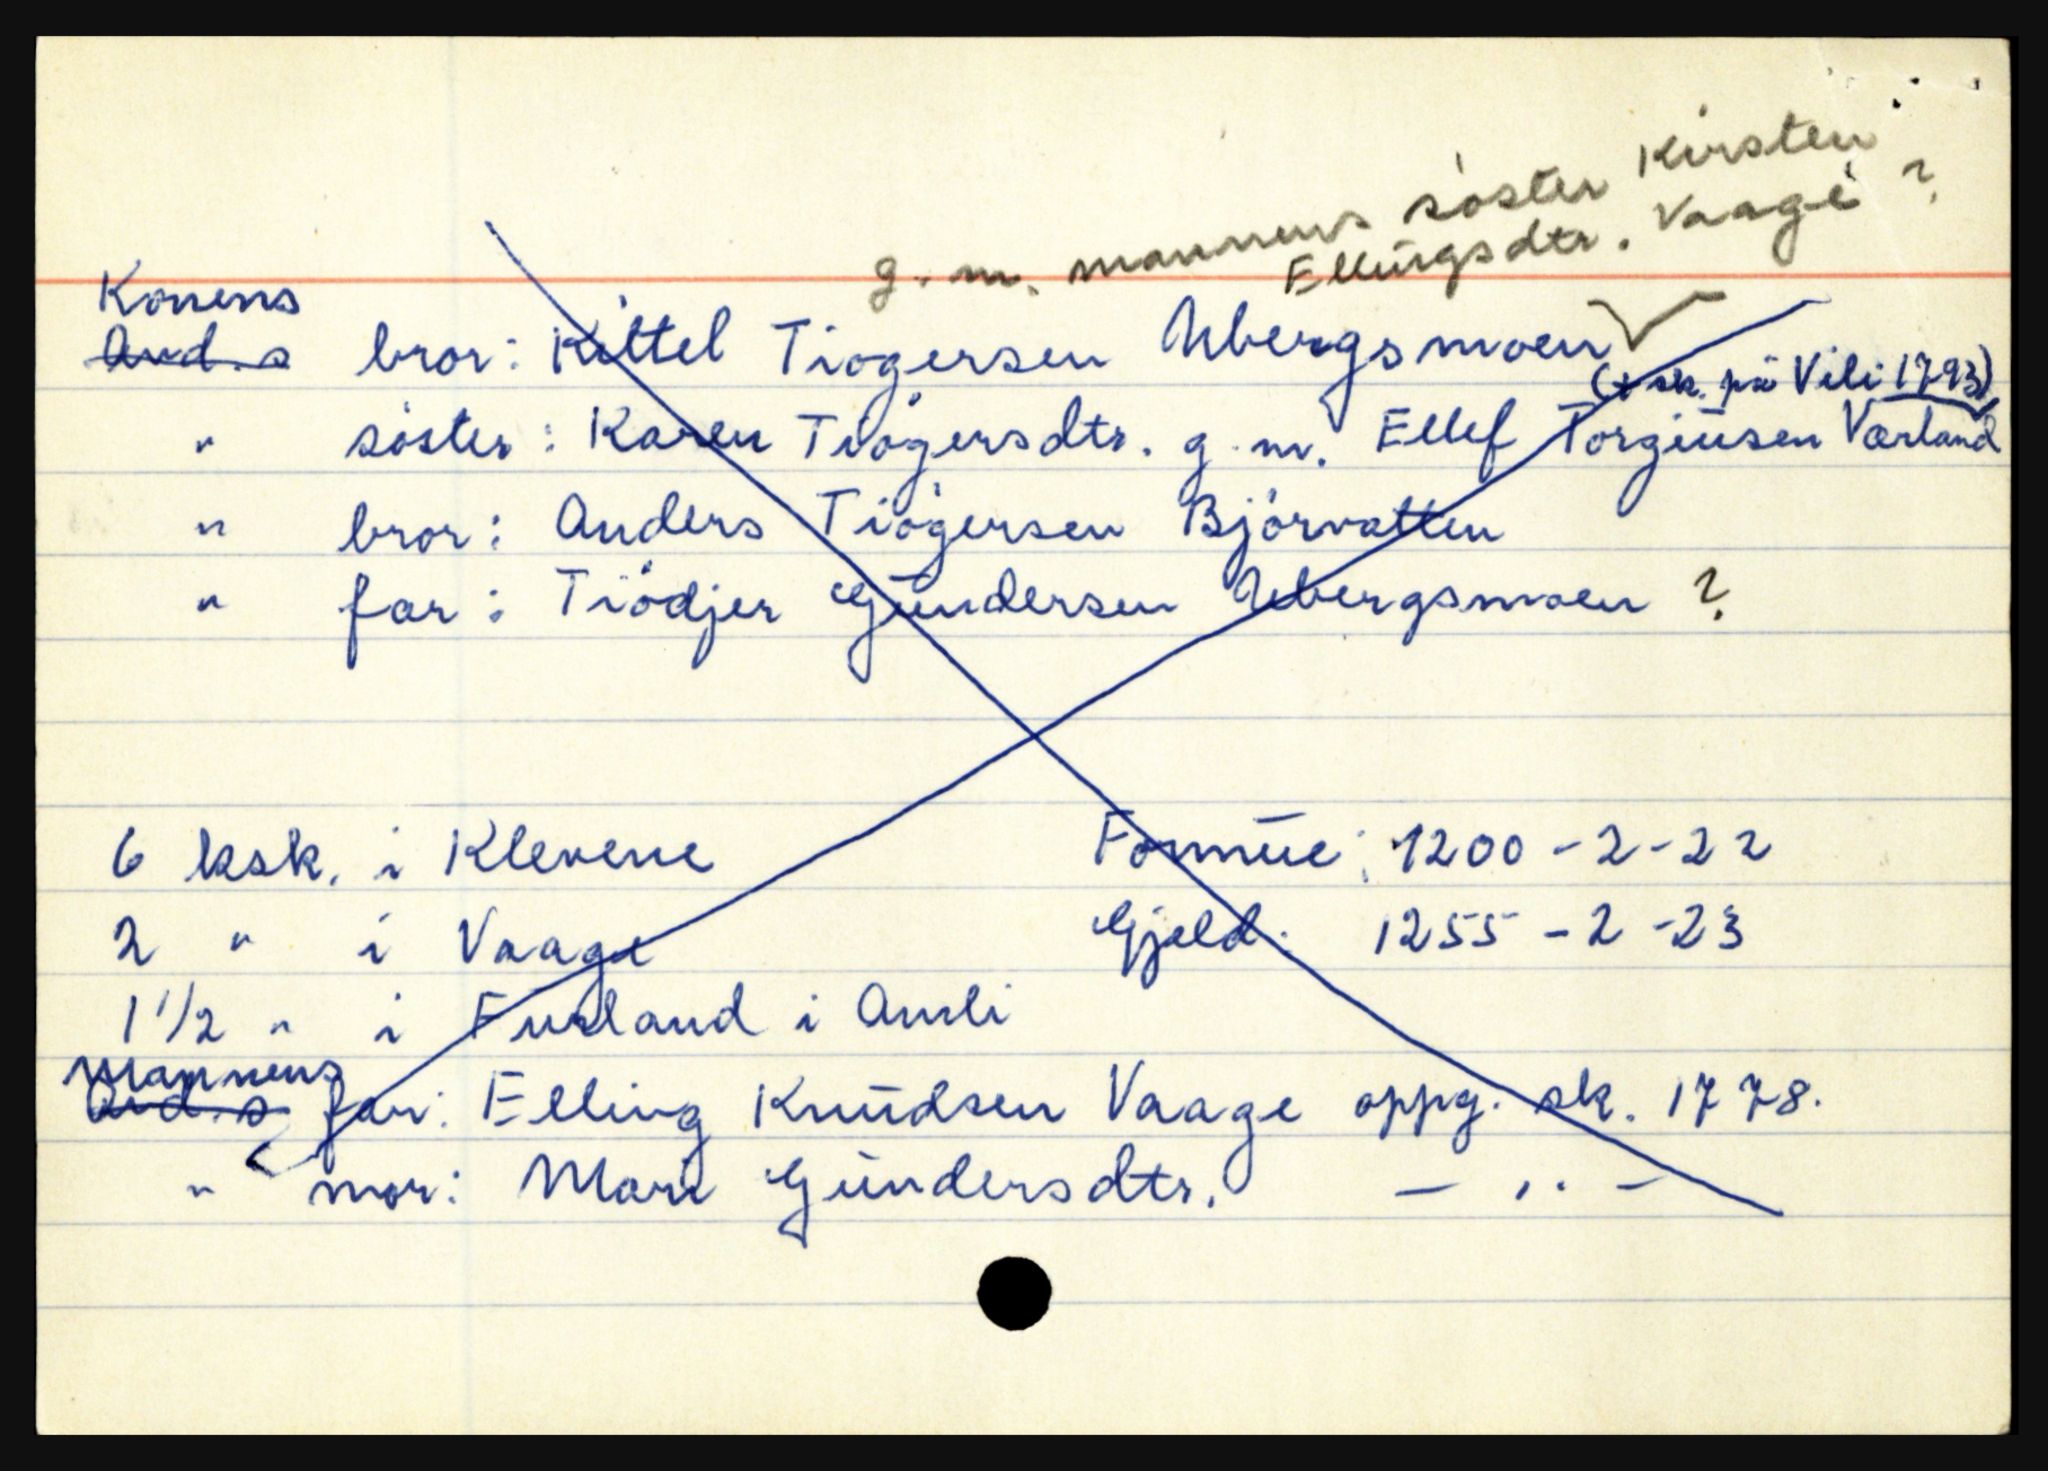 g. m. mannens söster Kirsten
Ellingsdtr. Vaage ?
Konens
Avd. s bror: Kittel Tiögersen Ubergsmoen
(+ sk. på Vili 1793)
" söster: Karen Tiögersdtr. g. m. Ellef Torgiusen Værland
" bror: Anders Tiögersen Björvatten
" far: Tiödjer Gundersen Ubergsmoen ?
6 ksk. i Klevene Formue: 1200 - 2 - 22
2 " i Vaage Gjeld: 1255 - 2 - 23
1 1/2 " i Furland i Amli
Mannens
Avd. s far: Elling Knudsen Vaage oppg. sk. 1778.
" mor: Mari Gundersdtr. — " —